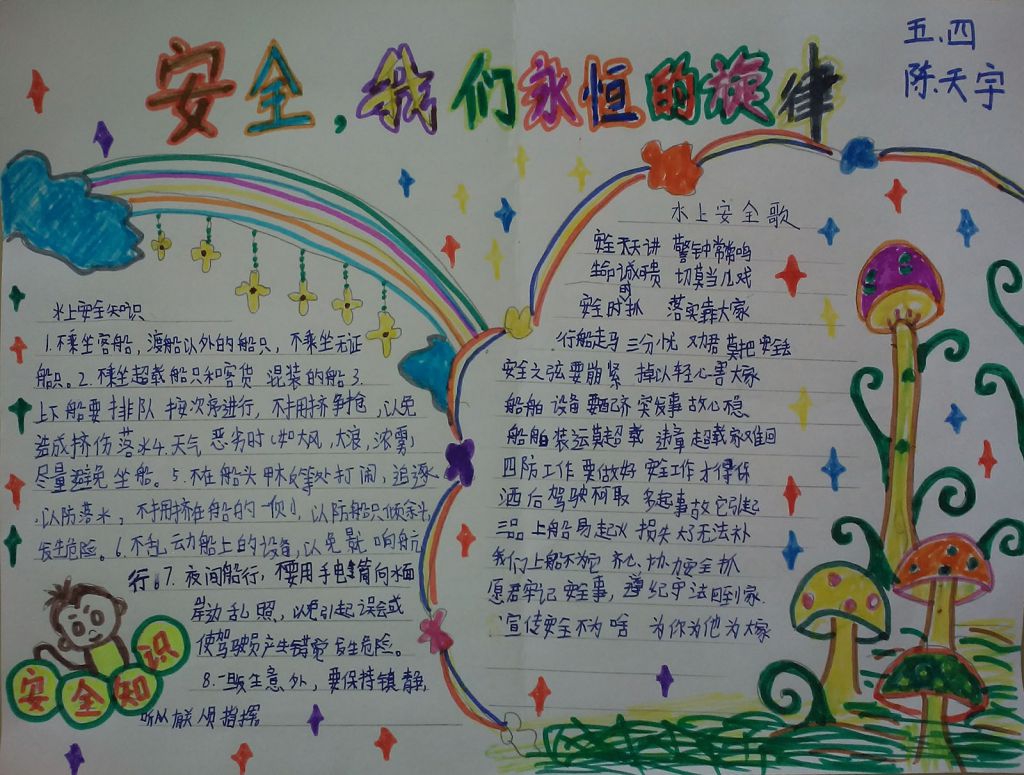 安全，我们永恒的旋律
五.四
陈天宇
水上安全知识
1.不乘坐客船，渡船以外的船只，不乘坐无证
船只。2.不乘坐超载船只和客货混装的船3.
上下船要排队按次序进行，不拥挤争抢，以免
造成挤伤落水4.天气恶劣时(如大风，大浪，浓雾)
尽量避免坐船。5.不在船头甲板等处打闹，追逐
以防落水，不拥挤在船的一侧，以防船只倾斜，
发生危险。6.不乱动船上的设备，以免影响航
行。7.夜间船行，不要用手电筒向水面
岸边乱照，以免引起误会或
使驾驶员产生错觉发生危险。
8.一旦发生意外，要保持镇静，
听从有关人员指挥
安全知识
水上安全歌
安全天天讲 警钟常常鸣
生命诚可贵 切莫当儿戏
安全时时抓 落实靠大家
行船走马三分忧 劝君莫把安全丢
安全之弦要崩紧 掉以轻心害大家
船舶设备要配齐 突发事故心稳
船舶装运莫超载 违章超载家难回
四防工作要做好 安全工作才得保
酒后驾驶不可取 多起事故它引起
三品上船易起火 损失太好无法补
我们上船不为 齐心协力安全抓
愿君牢记安全事，遵纪守法回到家.
宣传安全不为啥 为你为他为大家